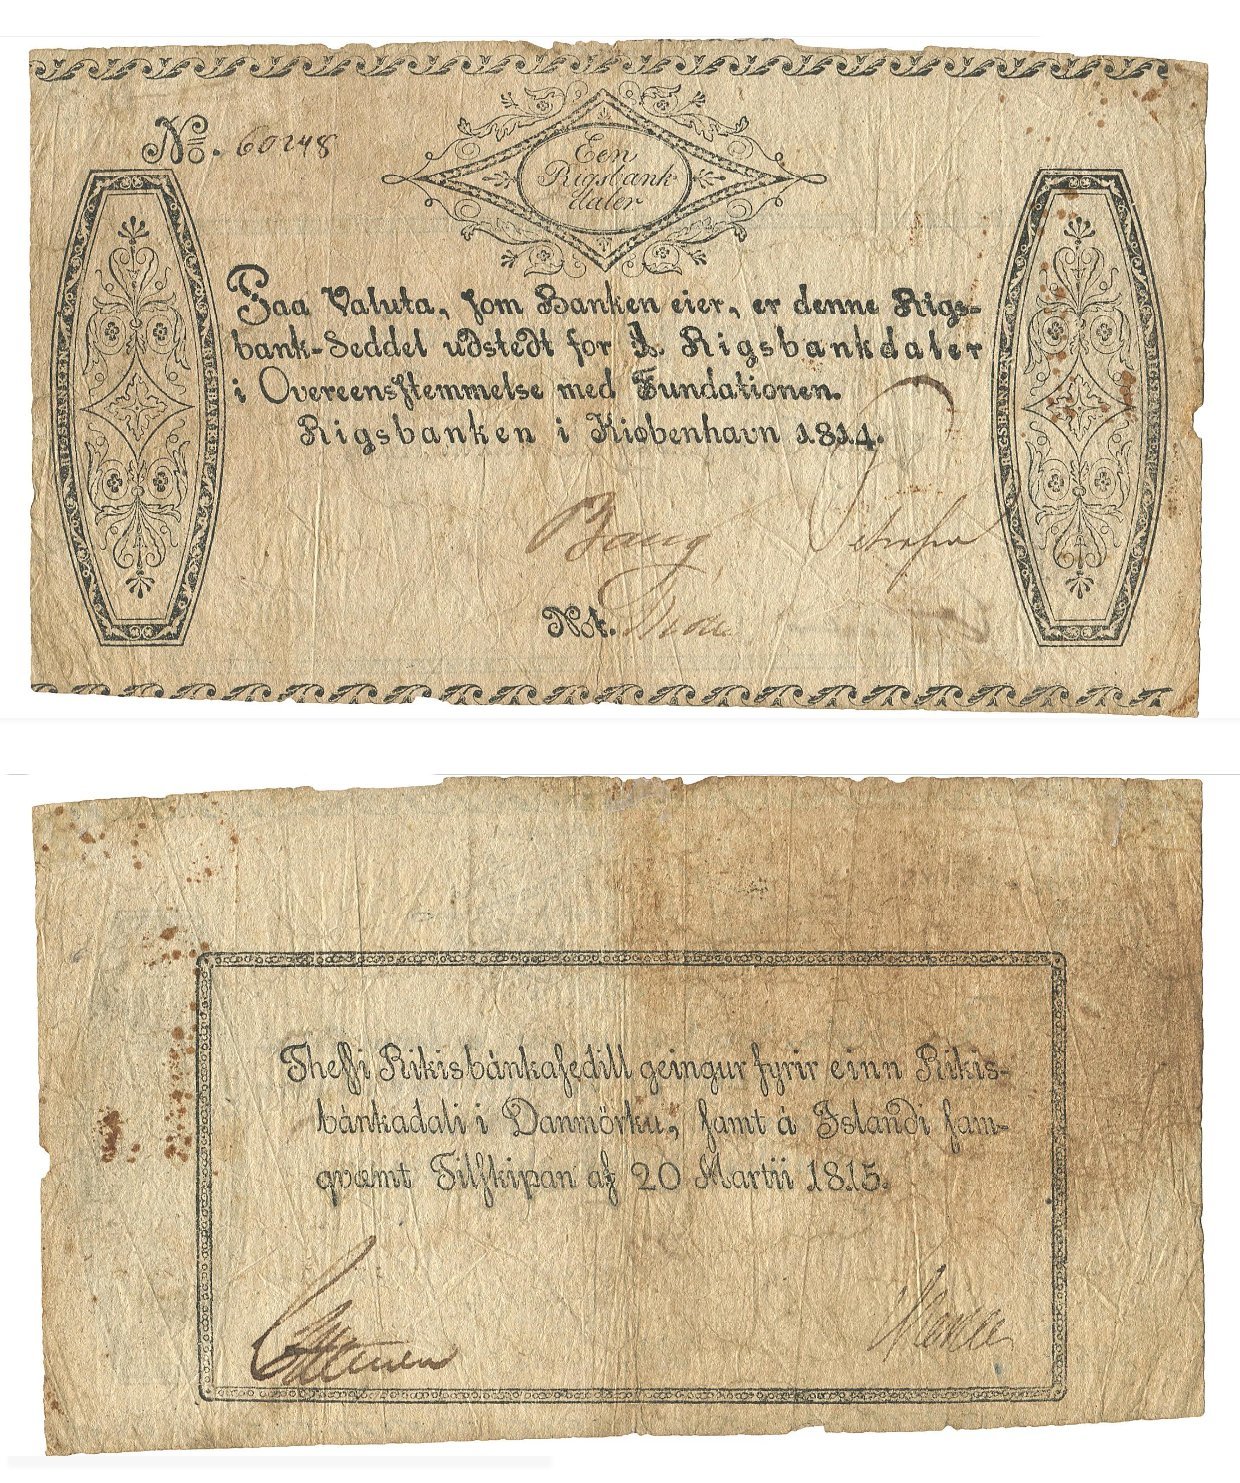 No. 60248
Een
Rigsbank
daler
Paa Valuta, ſom Banken eier, er denne Rigs-
bank-Seddel udstedt for 1. Rigsbankdaler
i Overeensſtemmelse med Fundationen.
Rigsbanken i Kiøbenhavn 1814.
Bang
Not.
Theſſi Rikisbánkaſedill geingur fyrir einn Rikis-
bánkadali i Danmörku, ſamt á Islandi ſam-
qvæmt Tilſkipan af 20 Martii 1815.